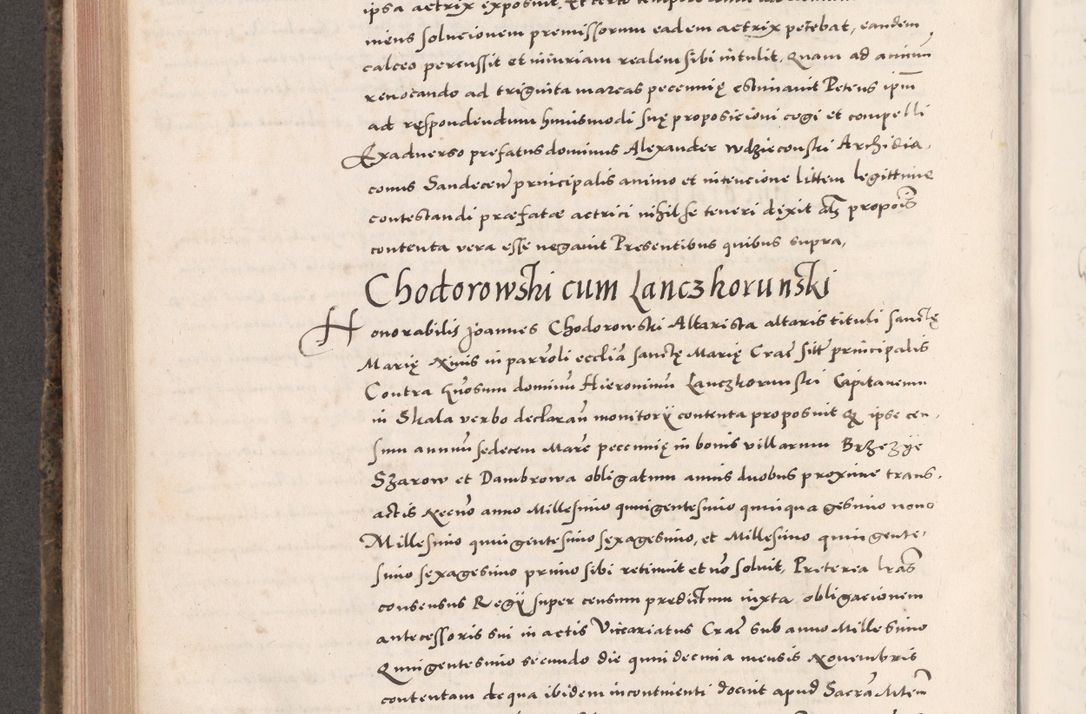 ipsa actrix exposuit, et certo tempore
niens solucionem premissorum eadem actrix petebat, eandem
calceo percussit et iniuriam realem sibi intulit, Quam ad animū
revocando ad triginta marcas pecunię estimavit Petens ipm̄
ad respondendum huiusmodi suę proposicioni cogi et compelli
Exadverso prefatus dominus Alexander Wdzieconski Archidia,
conus Sandecen̄ principalis animo et intencione littem legittime
contestandi præfatæ actrici nihil se teneri dixit als propois
contenta vera esse negavit Presentibus quibus supra,
Chodorowski cum Lanczkorunski
Honorabilis Joannes Chodorowski Altarista altaris tituli Sanctę
Marię Nivis in parroli ecclia Sanctę Marię Crac̄ sitt̄ principalis
Contra Gn̄osum dominū Hieronimū Lanczkorunski Capitaneum
in Skala verbo declaran̄ monitorÿ contenta proposuit Q ipse cen,
sum annuū sedecem Marc̄ pecunię in bonis villarum Brzezÿe
Szarow et Dambrowa obligatum annis duobus proxime trans,
actis Necnō anno Millesimo quingentesimo quinquagesimo nono
Millesimo quingentesimo sexagesimo, et Millesimo quingente,
simo sexagesimo primo sibi retinuit et nō solvit, Preterea lr̄as
consensus Regÿ super censum predictum iuxta obligacionem
antecessoris sui in actis Vicariatus Crac̄ sub anno Millesimo
Quingentesimo secundo die quindecima mensis Novembris
contentam de qua ibidem incontinenti docuit apud Sacrā Mtem̄